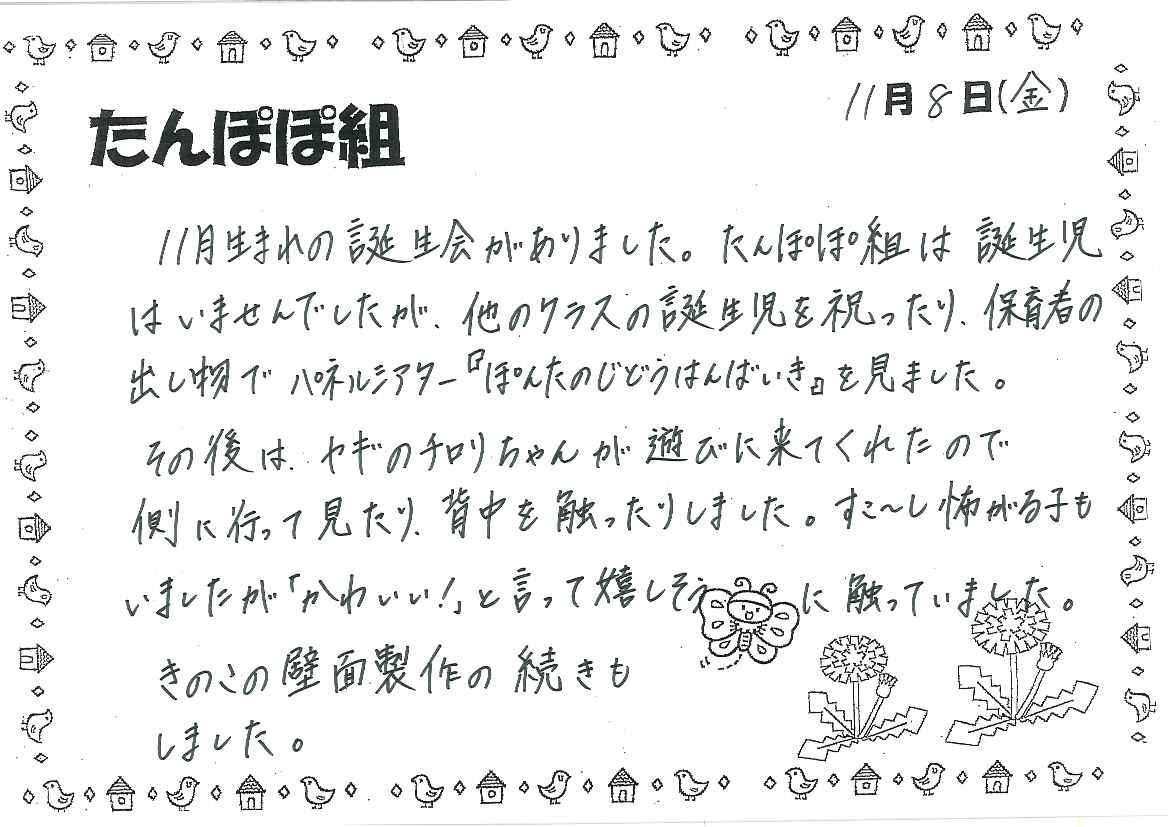 11月8日(金)
たんぽぽ組
11月生まれの誕生会がありました。たんぽぽ組は誕生児
はいませんでしたが、他のクラスの誕生児を祝ったり、保育者の
出し物でパネルシアター『ぽんたのじどうはんばいき』を見ました。
その後は、ヤギのチロリちゃんが遊びに来てくれたので
側に行って見たり、背中を触ったりしました。すこ〜し怖がる子も
いましたが「かわいい!」と言って嬉しそうに触っていました。
きのこの壁面製作の続きも
しました。